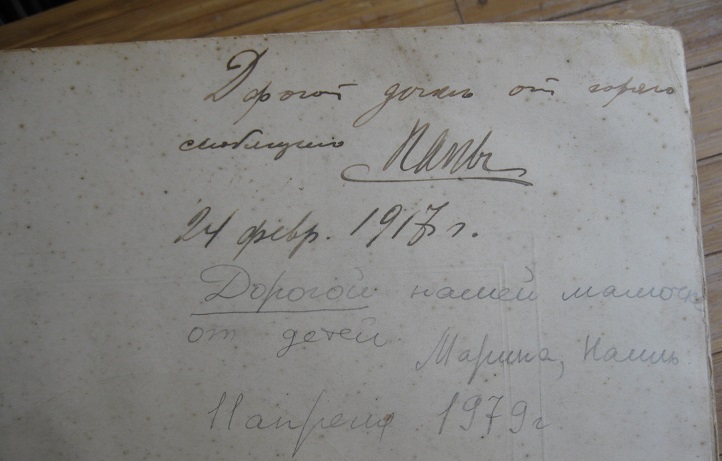 Дорогой дочке от горячо
любящего Папы
24 февр. 1917 г.
Дорогой нашей мамочке
от детей.
Марина, Наиль
11 апреля 1979 г